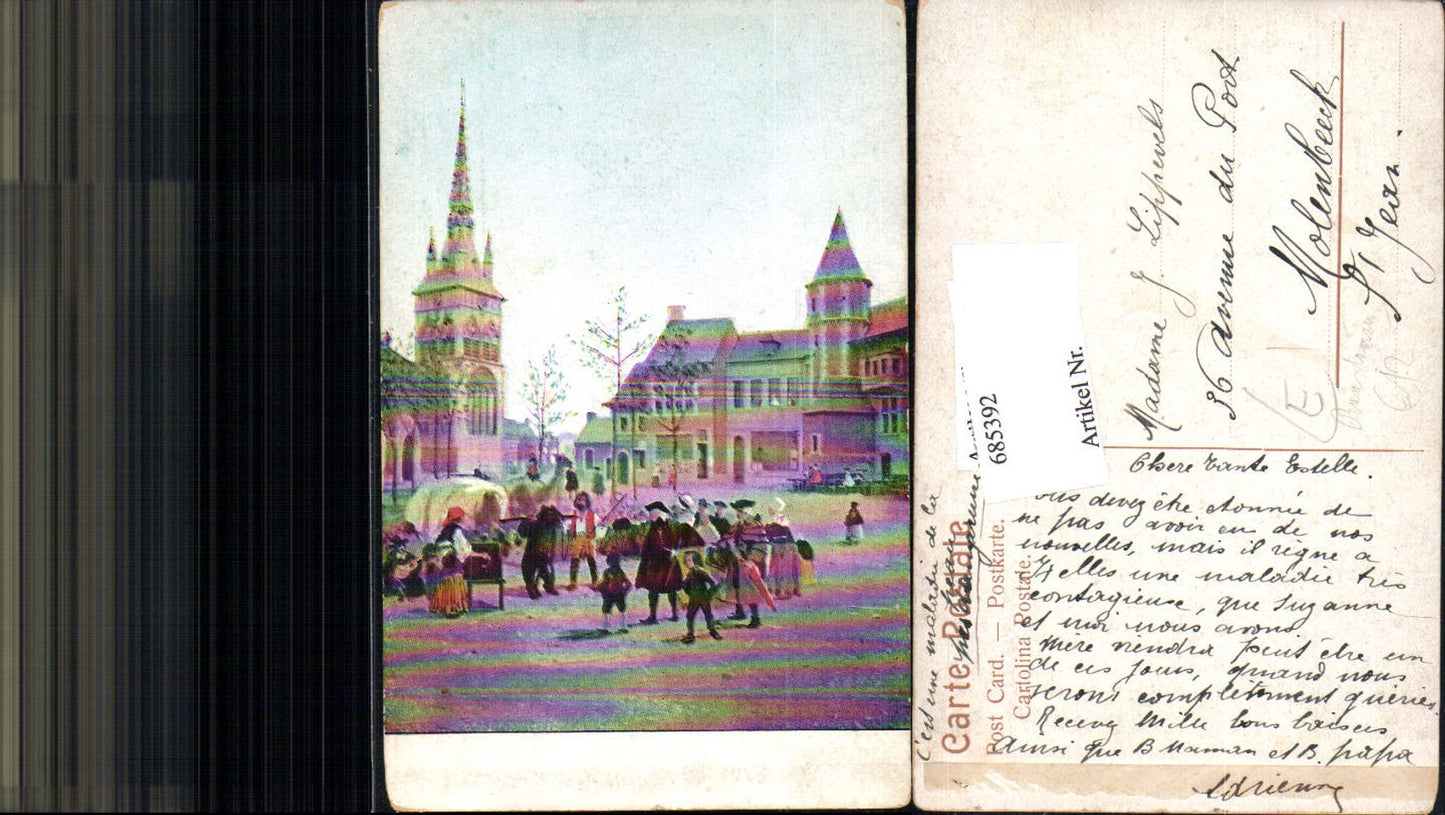 Madame J. Lippevels
36 avenue du Port
Molenbeeck
St Jean
E
685392
Artikel Nr.
Carte Postale
Post Card. — Postkarte.
Cartolina Postale.
Chere Tante Estelle.
vous devez être etonnée de
ne pas avoir eu de nos
nouvelles, mais il règne a
Ixelles une maladie très
contagieuse, que Suzanne
et moi nous avons
Mère viendra peut être un
de ces jours, quand nous
serons complètement guéries.
Recevez Mille bons baisers
ainsi que B Maman et B. papa
Adrienne
C'est une maladie de la